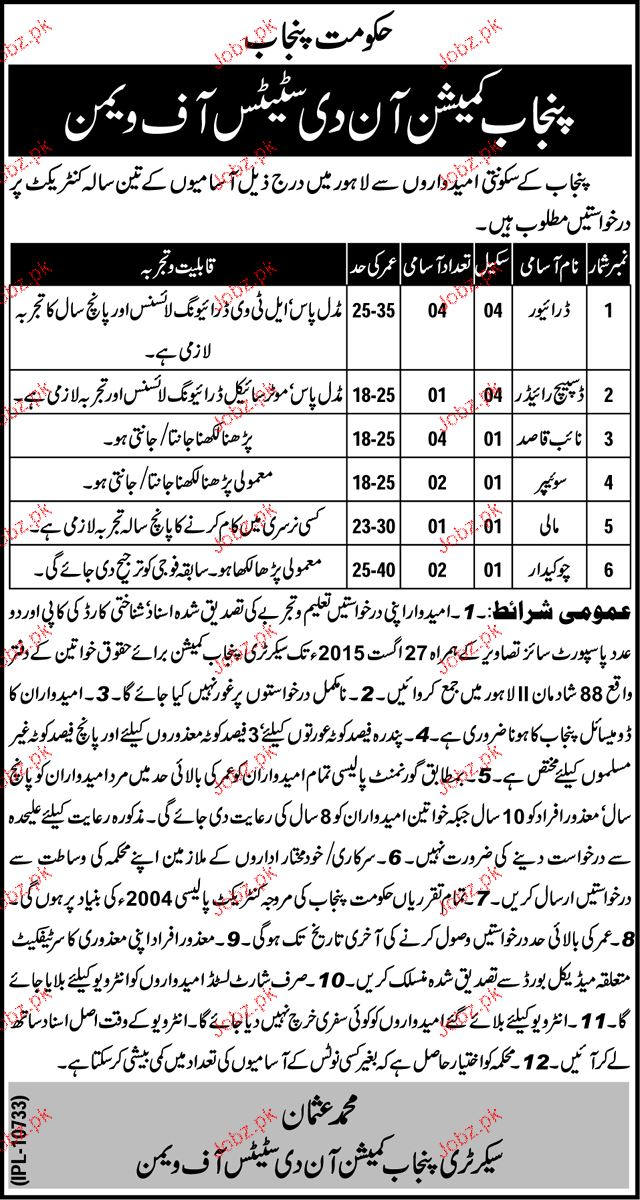 حکومت پنجاب
پنجاب کمیشن آن دی سٹیٹس آف ویمن
پنجاب کے سکونتی امیدواروں سے لاہور میں درج ذیل آسامیوں کے تین سالہ کنٹریکٹ پر
درخواستیں مطلوب ہیں۔
نمبر شمار نام آسامی سکیل تعداد آسامی عمر کی حد قابلیت و تجربہ
1 ڈرائیور 04 04 25-35 مڈل پاس، ایل ٹی وی ڈرائیونگ لائسنس اور پانچ سال کا تجربہ
لازمی ہے۔
2 ڈسپیچ رائیڈر 04 01 18-25 مڈل پاس، موٹر سائیکل ڈرائیونگ لائسنس اور تجربہ لازمی ہے۔
3 نائب قاصد 01 04 18-25 پڑھنا لکھنا جانتا/ جانتی ہو۔
4 سوئیپر 01 02 18-25 معمولی پڑھنا لکھنا جانتا/ جانتی ہو۔
5 مالی 01 01 23-30 کسی نرسری میں کام کرنے کا پانچ سالہ تجربہ لازمی ہے۔
6 چوکیدار 01 02 25-40 معمولی پڑھا لکھا ہو۔ سابقہ فوجی کو ترجیح دی جائے گی۔
عمومی شرائط:۔ 1۔ امیدوار اپنی درخواستیں تعلیم و تجربے کی تصدیق شدہ اسناد، شناختی کارڈ کی کاپی اور دو
عدد پاسپورٹ سائز تصاویر کے ہمراہ 27 اگست 2015ء تک سیکرٹری پنجاب کمیشن برائے حقوق خواتین کے دفتر
واقع 88 شادمان II لاہور میں جمع کروائیں۔ 2۔ نامکمل درخواستوں پر غور نہیں کیا جائے گا۔ 3۔ امیدواران کا
ڈومیسائل پنجاب کا ہونا ضروری ہے۔ 4۔ پندرہ فیصد کوٹہ عورتوں کیلئے، 3 فیصد کوٹہ معذوروں کیلئے اور پانچ فیصد کوٹہ غیر
مسلموں کیلئے مختص ہے۔ 5۔ بمطابق گورنمنٹ پالیسی تمام امیدواران کو عمر کی بالائی حد میں مرد امیدواران کو پانچ
سال، معذور افراد کو 10 سال جبکہ خواتین امیدواران کو 8 سال کی رعایت دی جائے گی۔ مذکورہ رعایت کیلئے علیحدہ
سے درخواست دینے کی ضرورت نہیں۔ 6۔ سرکاری/ خود مختار اداروں کے ملازمین اپنے محکمہ کی وساطت سے
درخواستیں ارسال کریں۔ 7۔ تمام تقرریاں حکومت پنجاب کی مروجہ کنٹریکٹ پالیسی 2004ء کی بنیاد پر ہوں گی۔
8۔ عمر کی بالائی حد درخواستیں وصول کرنے کی آخری تاریخ تک ہوگی۔ 9۔ معذور افراد اپنی معذوری کا سرٹیفکیٹ
متعلقہ میڈیکل بورڈ سے تصدیق شدہ منسلک کریں۔ 10۔ صرف شارٹ لسٹڈ امیدواروں کو انٹرویو کیلئے بلایا جائے
گا۔ 11۔ انٹرویو کیلئے بلائے گئے امیدواروں کو کوئی سفری خرچ نہیں دیا جائے گا۔ انٹرویو کے وقت اصل اسناد ساتھ
لے کر آئیں۔ 12۔ محکمہ کو اختیار حاصل ہے کہ بغیر کسی نوٹس کے آسامیوں کی تعداد میں کمی بیشی کر سکتا ہے۔
محمد عثمان
سیکرٹری پنجاب کمیشن آن دی سٹیٹس آف ویمن
(IPL-10733)
Jobz.pk